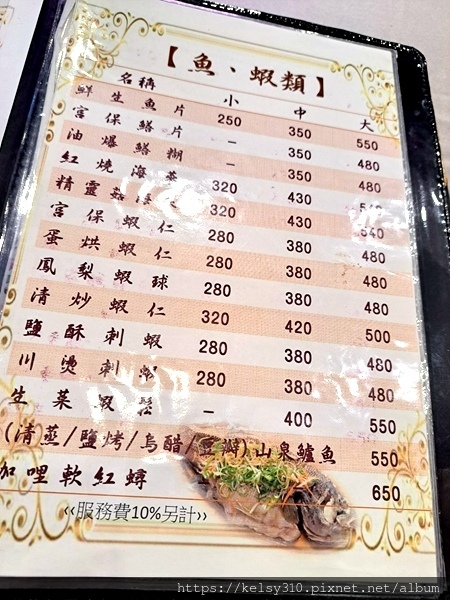 【魚、蝦類】
名稱 小 中 大
鮮生魚片 250 350 550
宮保鱔片 – 350 480
油爆鱔糊 – 350 480
紅燒海蔘 320 430 540
精靈菇海 320 430 540
宮保蝦仁 280 380 480
蛋烘蝦仁 280 380 480
鳳梨蝦球 280 380 480
清炒蝦仁 320 420 500
鹽酥刺蝦 280 380 480
川燙刺蝦 280 380 480
生菜蝦鬆 – 400 550
(清蒸/鹽烤/烏醋/豆瓣)山泉鱸魚 550
加哩軟紅蟳 650
‹‹服務費10%另計››
https://kelsy310.pixnet.net/album